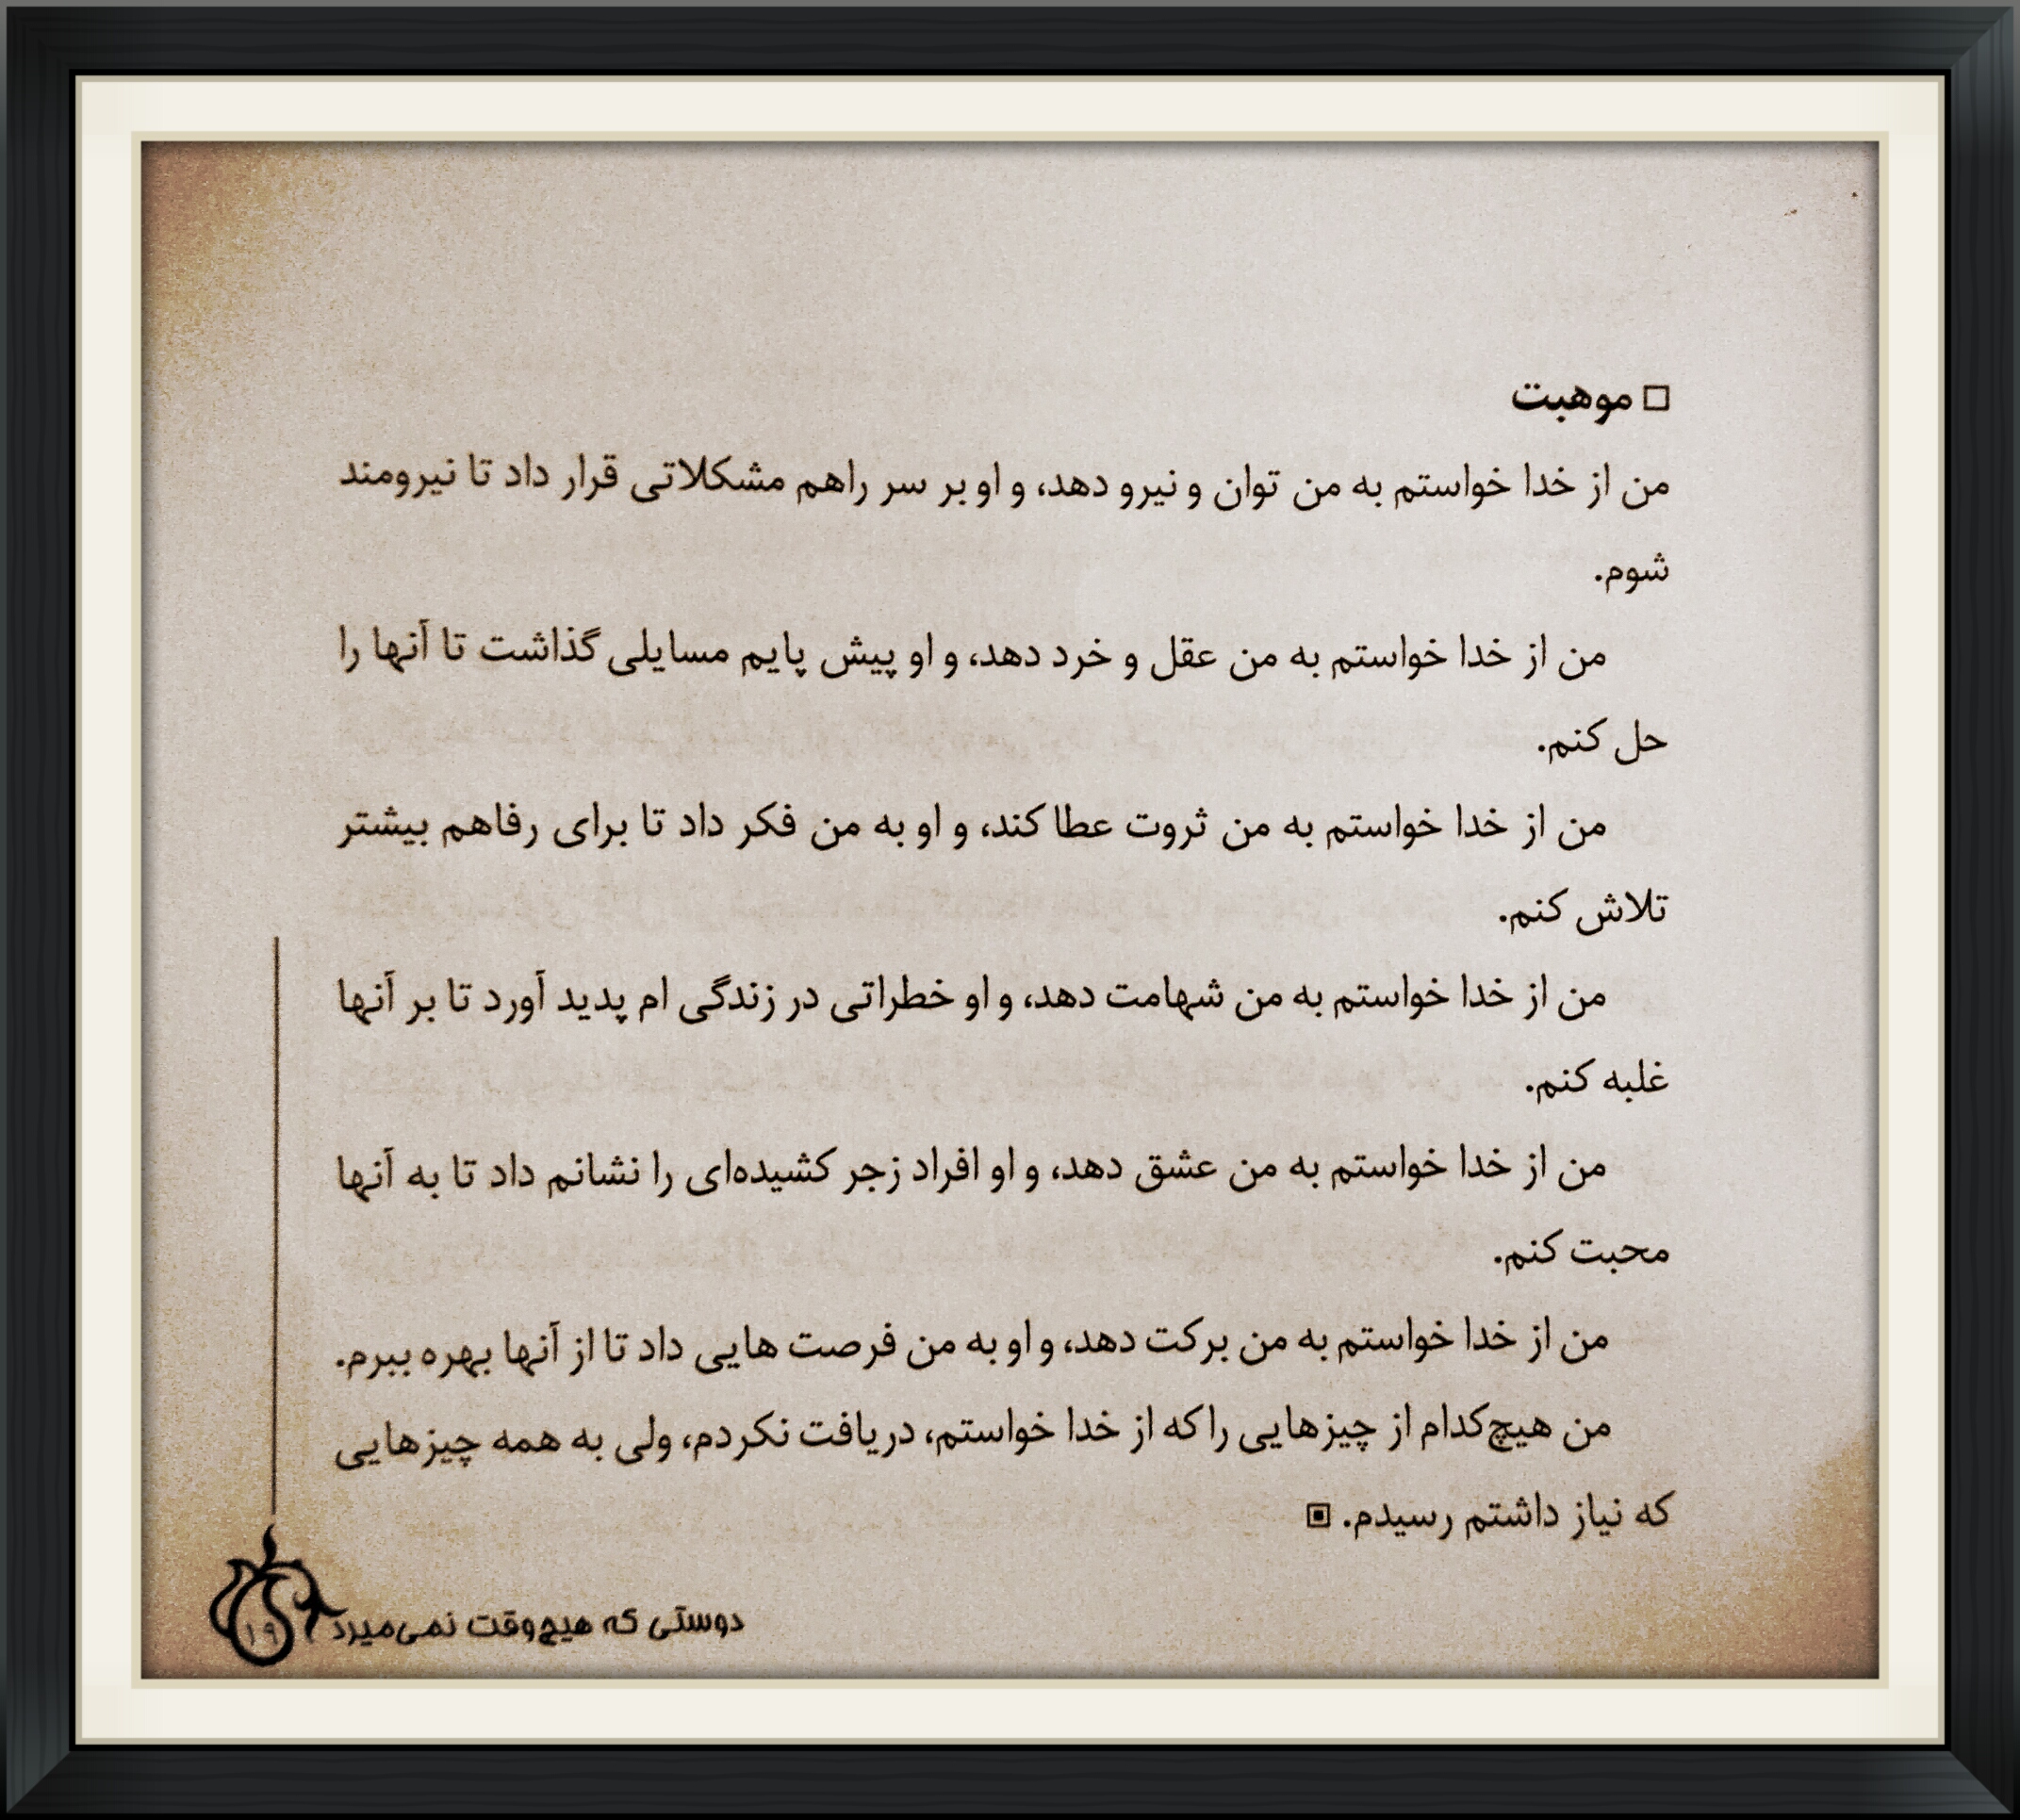 □ موهبت
من از خدا خواستم به من توان و نیرو دهد، و او بر سر راهم مشکلاتی قرار داد تا نیرومند
شوم.
من از خدا خواستم به من عقل و خرد دهد، و او پیش پایم مسایلی گذاشت تا آنها را
حل کنم.
من از خدا خواستم به من ثروت عطا کند، و او به من فکر داد تا برای رفاهم بیشتر
تلاش کنم.
من از خدا خواستم به من شهامت دهد، و او خطراتی در زندگی ام پدید آورد تا بر آنها
غلبه کنم.
من از خدا خواستم به من عشق دهد، و او افراد زجر کشیده‌ای را نشانم داد تا به آنها
محبت کنم.
من از خدا خواستم به من برکت دهد، و او به من فرصت هایی داد تا از آنها بهره ببرم.
من هیچ‌کدام از چیزهایی را که از خدا خواستم، دریافت نکردم، ولی به همه چیزهایی
که نیاز داشتم رسیدم. ▣
دوستی که هیچ‌وقت نمی‌میرد ۱۹